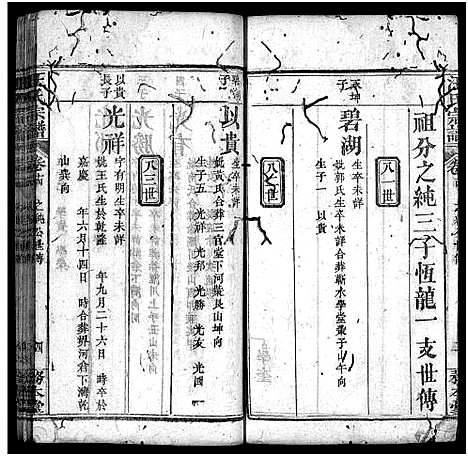 祖分之純三子恆龍一支世傳
八一世
碧湖
生卒未詳
娶郭氏生卒未詳合葬蘄水學堂棗子山午向
生子一 以貴
八二世
以貴
生卒未詳
娶黃氏合葬三官堂下河柴艮山坤向
生子五 光祥 光邦 光勝 光友 光國
八三世
以貴長子
光祥
字有明生卒未詳
娶王氏生於乾隆 年九月二十六日 時卒於
嘉慶 年六月十四日 時合葬楞河倉下灣乾
山巽向
氏宗譜
卷
四